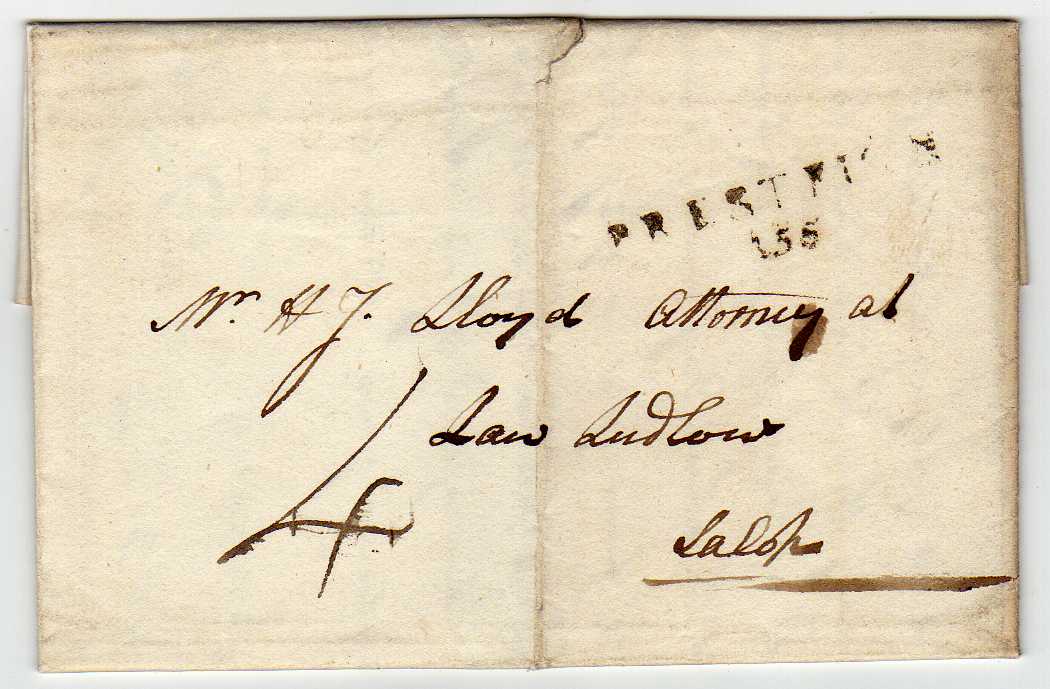 PRESTEIGN
156
Mr. H J. Lloyd Attorney at
Law Ludlow
4
Salop